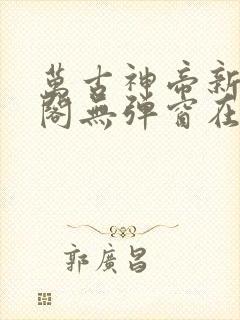 萬古神帝新
閣無彈窗在
郭廣昌